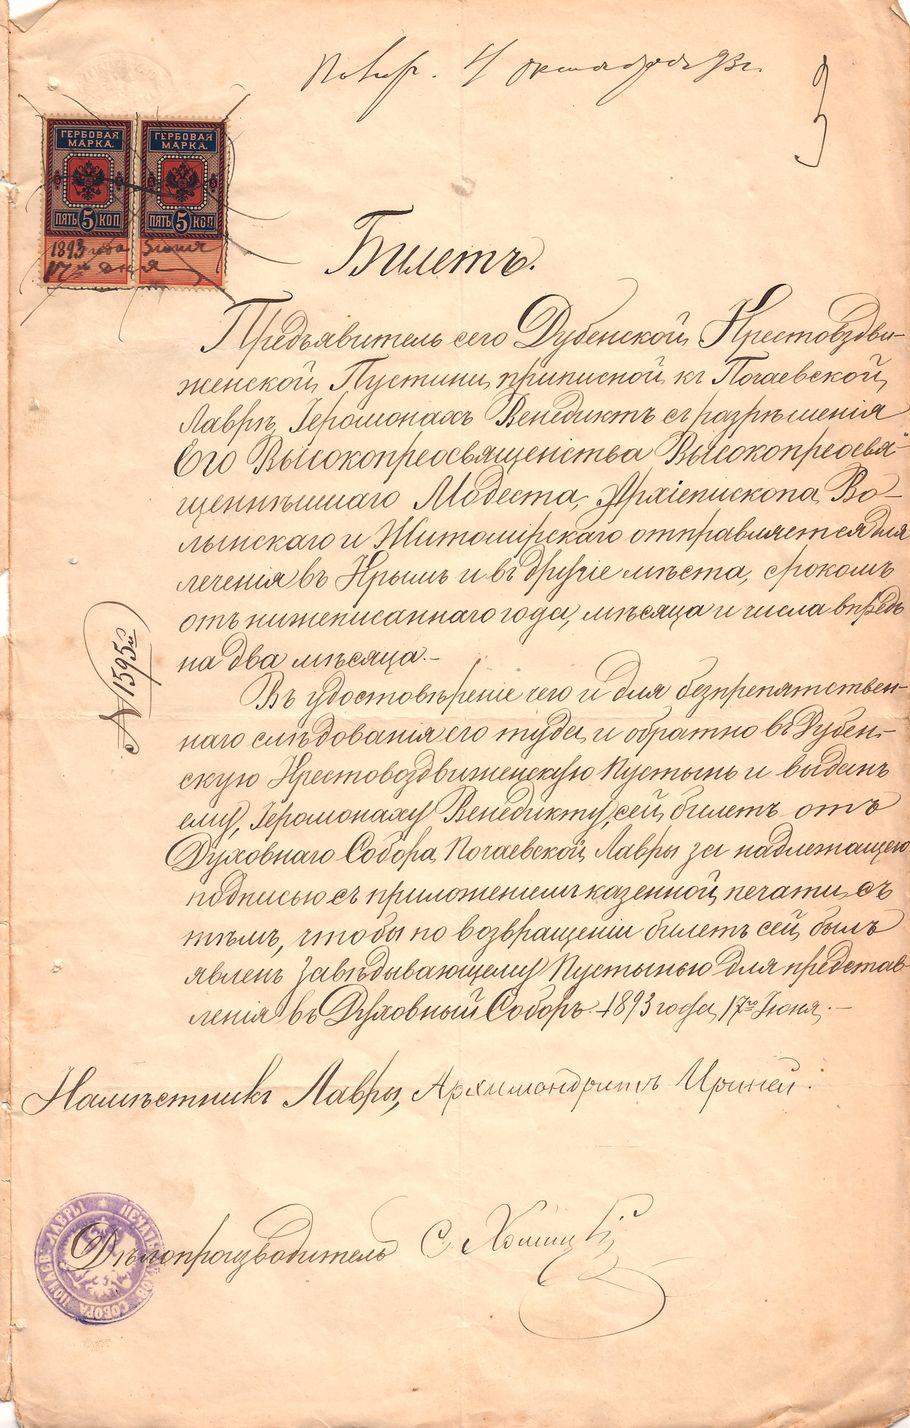 4 октября 93 г.
9
ГЕРБОВАЯ МАРКА. ГЕРБОВАЯ МАРКА.
ПЯТЬ 5 КОП ПЯТЬ 5 КОП
1893 года Iюня
17го дня
Билетъ.
Предъявитель сего Дубенской Крестовоздви-
женской Пустыни, приписной къ Почаевской
Лаврѣ, Іеромонахъ Венедиктъ съ разрѣшенія
Его Высокопреосвященства Высокопреосвя-
щеннѣйшаго Модеста, Архіепископа Во-
лынскаго и Житомірскаго отправляется для
леченія въ Крымъ и въ другіе мѣста, срокомъ
отъ нижеписаннаго года, мѣсяца и числа впредь
на два мѣсяца.-
Въ удостовѣреніе чего и для безпрепятствен-
наго слѣдованія его туда и обратно въ Дубен-
скую Крестовоздвиженскую Пустынь и выданъ
ему, Іеромонаху Венедикту, сей билетъ отъ
Духовнаго Собора Почаевской Лавры за надлежащею
подписью съ приложеніемъ казенной печати, съ
тѣмъ, чтобы по возвращеніи билетъ сей былъ
явленъ Завѣдывающему Пустынью для представ-
ленія въ Духовный Соборъ. 1893 года, 17го Іюня.-
№ 1595й
Намѣстникъ Лавры, Архимандритъ Ириней.
Дѣлопроизводитель С.
ПЕЧАТЬ ДУХОВ. СОБОРА ПОЧАЕВ. ЛАВРЫ